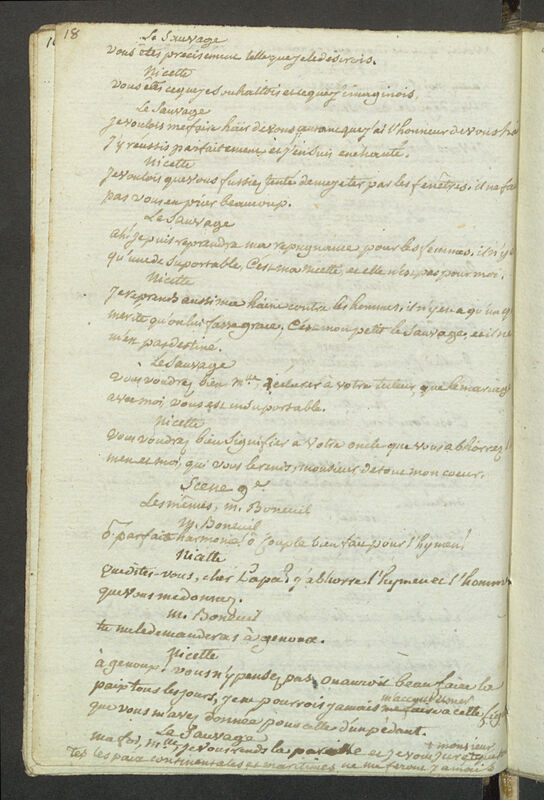 18
Le Sauvage
vous êtes précisément telle que je le desirois.
Nicette
vous êtes ce que je souhaittois et ce que j'imaginois.
Le Sauvage
je voulois me faire haïr de vous avant que j'ai l'honneur de vous
j'y réussis parfaitement, et j'en suis enchanté.
Nicette
je voulois que vous fussiez tenté de me jeter par les fenêtres. il ne fa
pas vous en prier beaucoup.
Le Sauvage
ah! je puis reprendre ma repugnance pour les femmes. il n'y
qu'une de suportable, C'est ma nicette, et elle n'est pas pour moi.
Nicette
Je reprends aussi ma haine contre les hommes, il n'y en a qu'un q
merite qu'on lui fasse grace, C'est mon petit le Sauvage, et il ne
m'en pas destiné.
Le Sauvage
vous voudrez bien, mlle, declarer à votre tuteur, que le mariage
avec moi vous est insuportable.
Nicette
vous voudrez bien signifier à votre oncle que vous abhorrez
men et moi, qui vous le rends, monsieur de tout mon coeur.
Scene 9e
Les mêmes, m. Boneuil
M. Boneuil
ô parfaite harmonie! ô couple bien fait pour l'hymen!
Nicette
que dites-vous, cher Papa? j'abhorre l'hymen et l'homme
que vous me donnez.
m. Boneuil
tu me le demanderas à genoux.
Nicette
à genoux. vous n'y pensez pas, on auroit beau faire la
paix tous les jours, je ne pourrois jamais me faire à cette
m'accoutumer
que vous m'avez donnée pour celle d'un pédant.
Le Sauvage
ma foi, mlle, je vous rends la pareille et je vous jure
monsieur
tes les paix continentales et maritimes ne me feront jamais